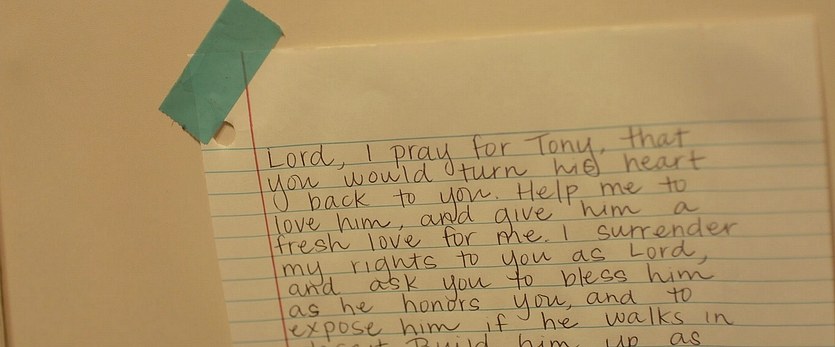 Lord, I pray for Tony, that
you would turn his heart
back to you. Help me to
love him, and give him a
fresh love for me. I surrender
my rights to you as Lord,
and ask you to bless him
as he honors you, and to
expose him if he walks in
Build him up as